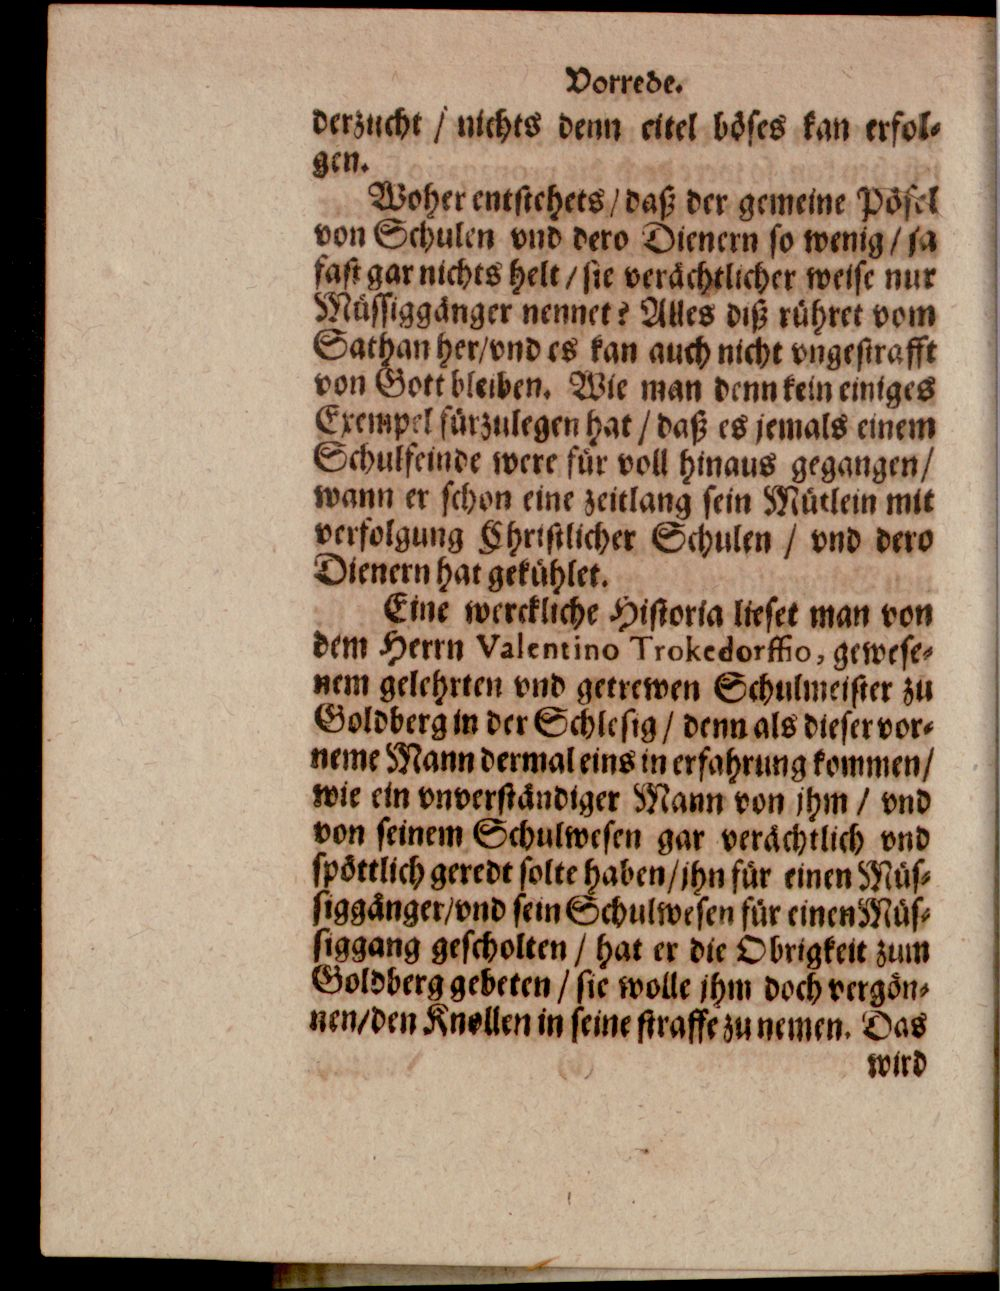 Vorrede.
derzucht / nichts denn eitel böses kan erfol-
gen.
Woher entstehets / daß der gemeine Pöfel
von Schulen vnd dero Dienern so wenig / ja
fast gar nichts helt / sie verächtlicher weise nur
Müssiggänger nennet? Alles diß rühret vom
Sathan her/vnd es kan auch nicht vngestrafft
von Gott bleiben. Wie man denn kein einiges
Exempel fürzulegen hat / daß es jemals einem
Schulfeinde were für voll hinaus gegangen/
wann er schon eine zeitlang sein Mütlein mit
verfolgung Christlicher Schulen / vnd dero
Dienern hat gekühlet.
Eine werckliche Historia lieset man von
dem Herrn Valentino Trokedorffio, gewese-
nem gelehrten vnd getrewen Schulmeister zu
Goldberg in der Schlesig / denn als dieser vor-
neme Mann dermal eins in erfahrung kommen/
wie ein vnverständiger Mann von jhm / vnd
von seinem Schulwesen gar verächtlich vnd
spöttlich geredt solte haben/jhn für einen Müs-
siggänger/vnd sein Schulwesen für einen Müs-
siggang gescholten / hat er die Obrigkeit zum
Goldberg gebeten / sie wolle jhm doch vergön-
nen/den Knollen in seine straffe zu nemen. Das
wird